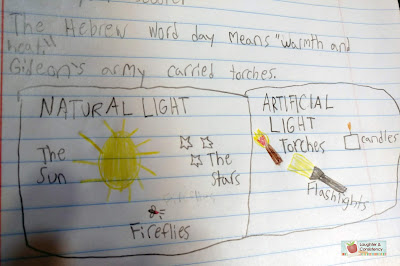 The Hebrew word day means "warmth and
heat"
Gideon's army carried torches.
NATURAL LIGHT
The
Sun
The
Stars
Fireflies
ARTIFICIAL
LIGHT
Torches
candles
Flashlights
Laughter &
Consistency